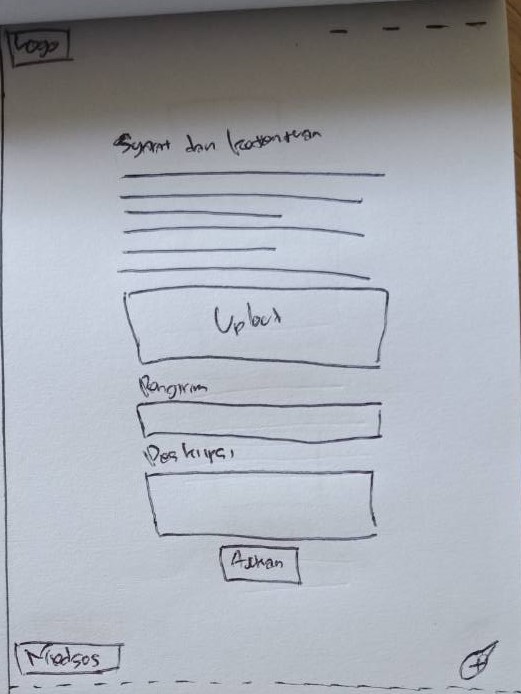 Logo
Syarat dan ketentuan
Upload
Pengirim
Deskripsi
Ajukan
Medsos